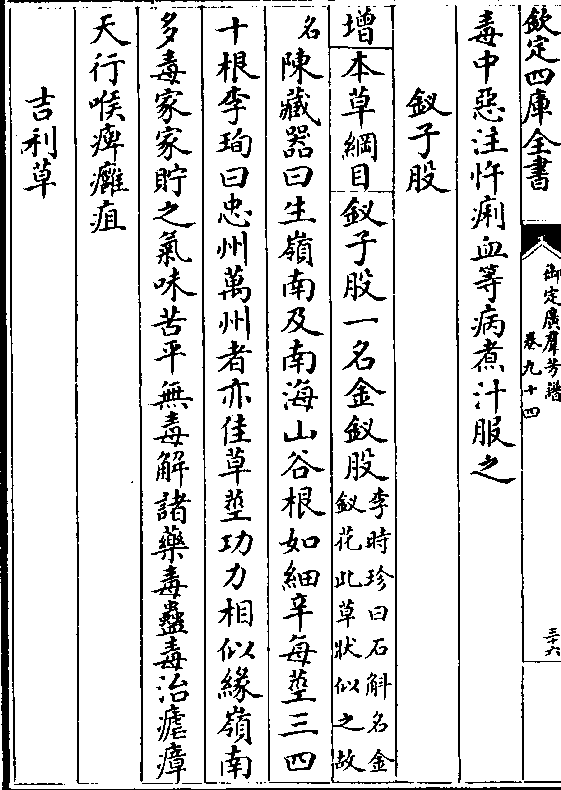 欽定四庫全書
御定廣羣芳譜
卷九十四
三十六
毒中惡注忤痢血等病煮汁服之
釵子股
增本草綱目釵子股一名金釵股李時珍曰石斛名金
釵花此草狀似之故
名陳藏器曰生嶺南及南海山谷根如細辛每莖三四
十根李珣曰忠州萬州者亦佳草莖功力相似緣嶺南
多毒家家貯之氣味苦平無毒解諸藥毒蠱毒治瘧瘴
天行喉痺癰疽
吉利草